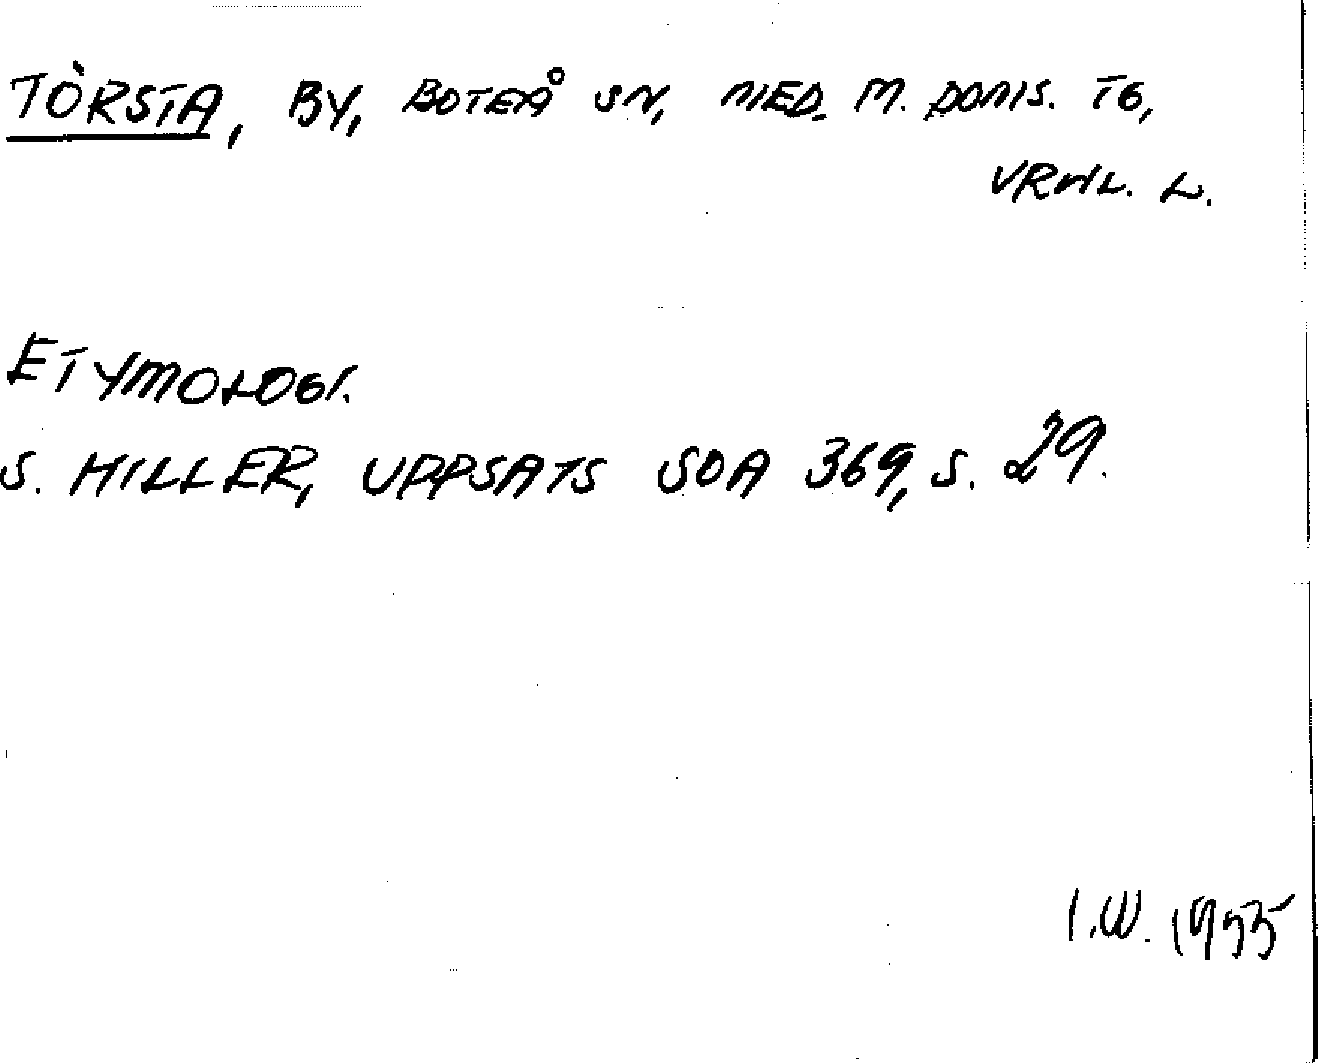 TÖRSTA, BY, BOTEÅ SN, MED. M. DOMS. TG,
VRNL. L.
ETYMOLOGI.
S. HILLER, UPPSATS SOA 369, S. 29.
I.W. 1955